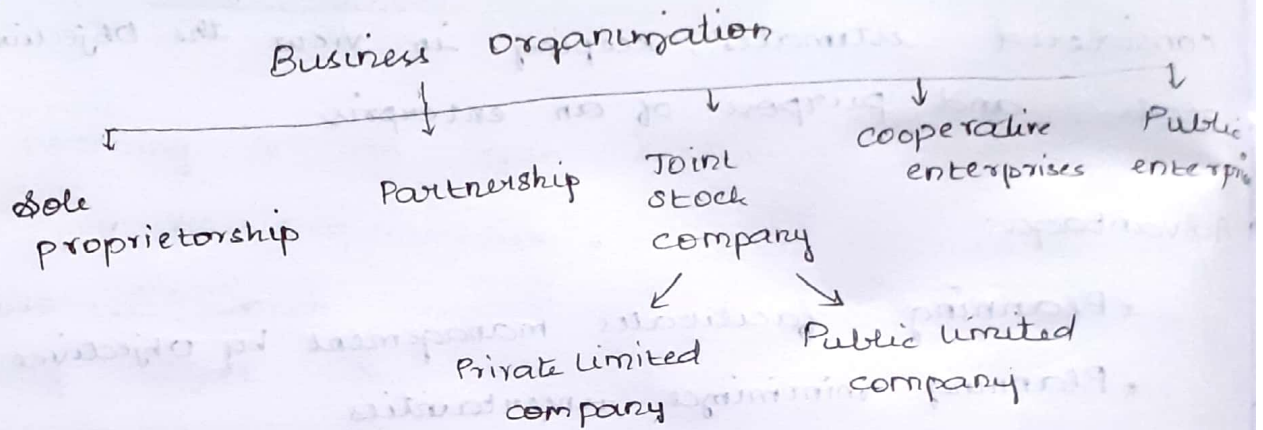 Business organization
Sole
proprietorship
Partnership
Joint
stock
company
cooperative
enterprises
Public
Private limited
company
Public limited
company